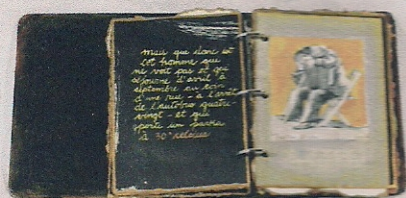 mais que donc est
cet homme que
ne voit pas et qui
séjourne d'avril à
septembre au coin
d'une rue - à l'arrêt
de l'autobus quatre-
vingt - et qui
porte un
à 30° celsius